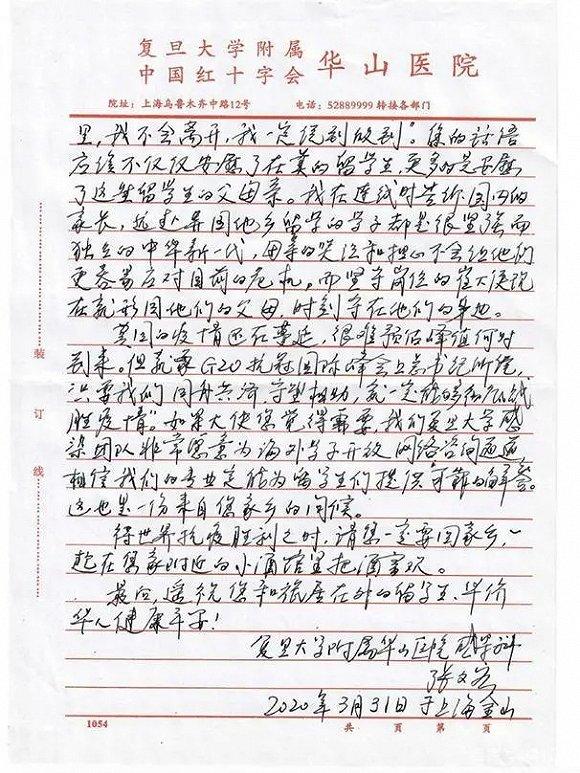 复旦大学附属
中国红十字会 华山医院
院址：上海乌鲁木齐中路12号 电话：52889999 转接各部门
里，我不会离开，我一定说到做到”。您的话语
应该不仅仅安慰了在美的留学生，更多的是安慰
了这些留学生的父母亲。我在连线时告诉国内的
家长，远赴异国他乡留学的学子都是很坚强而
独立的中华新一代，母亲的哭泣和担心不会让他们
更容易应对目前的危机。而坚守岗位的崔大使现
在就形同他们的父母，时刻守在他们的身边。
美国的疫情还在蔓延，很难预估峰值何时
到来。但就像G20抗冠国际峰会上总书记所说，
只要我们同舟共济守望相助，就一定能够彻底战
胜疫情”。如果大使您觉得需要，我们复旦大学感
染团队非常愿意为海外学子开放网络咨询通道，
相信我们的专业定能为留学生们提供可靠的解答。
这也是一份来自您家乡的问候。
待世界抗疫胜利之时，请您一定要回家乡，一
起在您家附近的小酒馆里把酒言欢。
最后，遥祝您和旅居在外的留学生、华侨
华人健康平安！
复旦大学附属华山医院 感染科
张文宏
2020年3月31日 于上海金山
装
订
线
1054
共 页 第 页